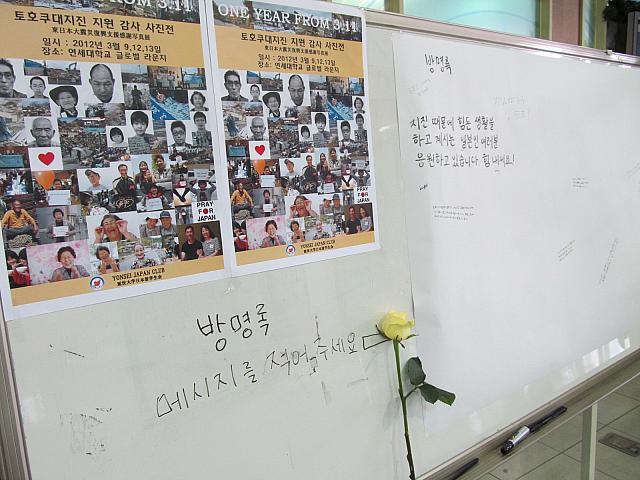 ONE YEAR FROM 3.11
토호쿠대지진 지원 감사 사진전
東日本大震災復興支援感謝写真展
일시 : 2012년 3월 9,12,13일
장소: 연세대학교 글로벌 라운지
PRAY
FOR
JAPAN
YONSEI JAPAN CLUB
FROM 3.11
토호쿠대지진 지원 감사 사진전
東日本大震災復興支援感謝写真展
일시 : 2012년 3월 9,12,13일
장소: 연세대학교 글로벌 라운지
PRAY
FOR
JAPAN
YONSEI JAPAN CLUB
방명록
메시지를 적어 주세요
방명록
지진 때문에 힘든 생활을
하고 계시는 일본인 여러분
응원하고 있습니다 힘내세요!